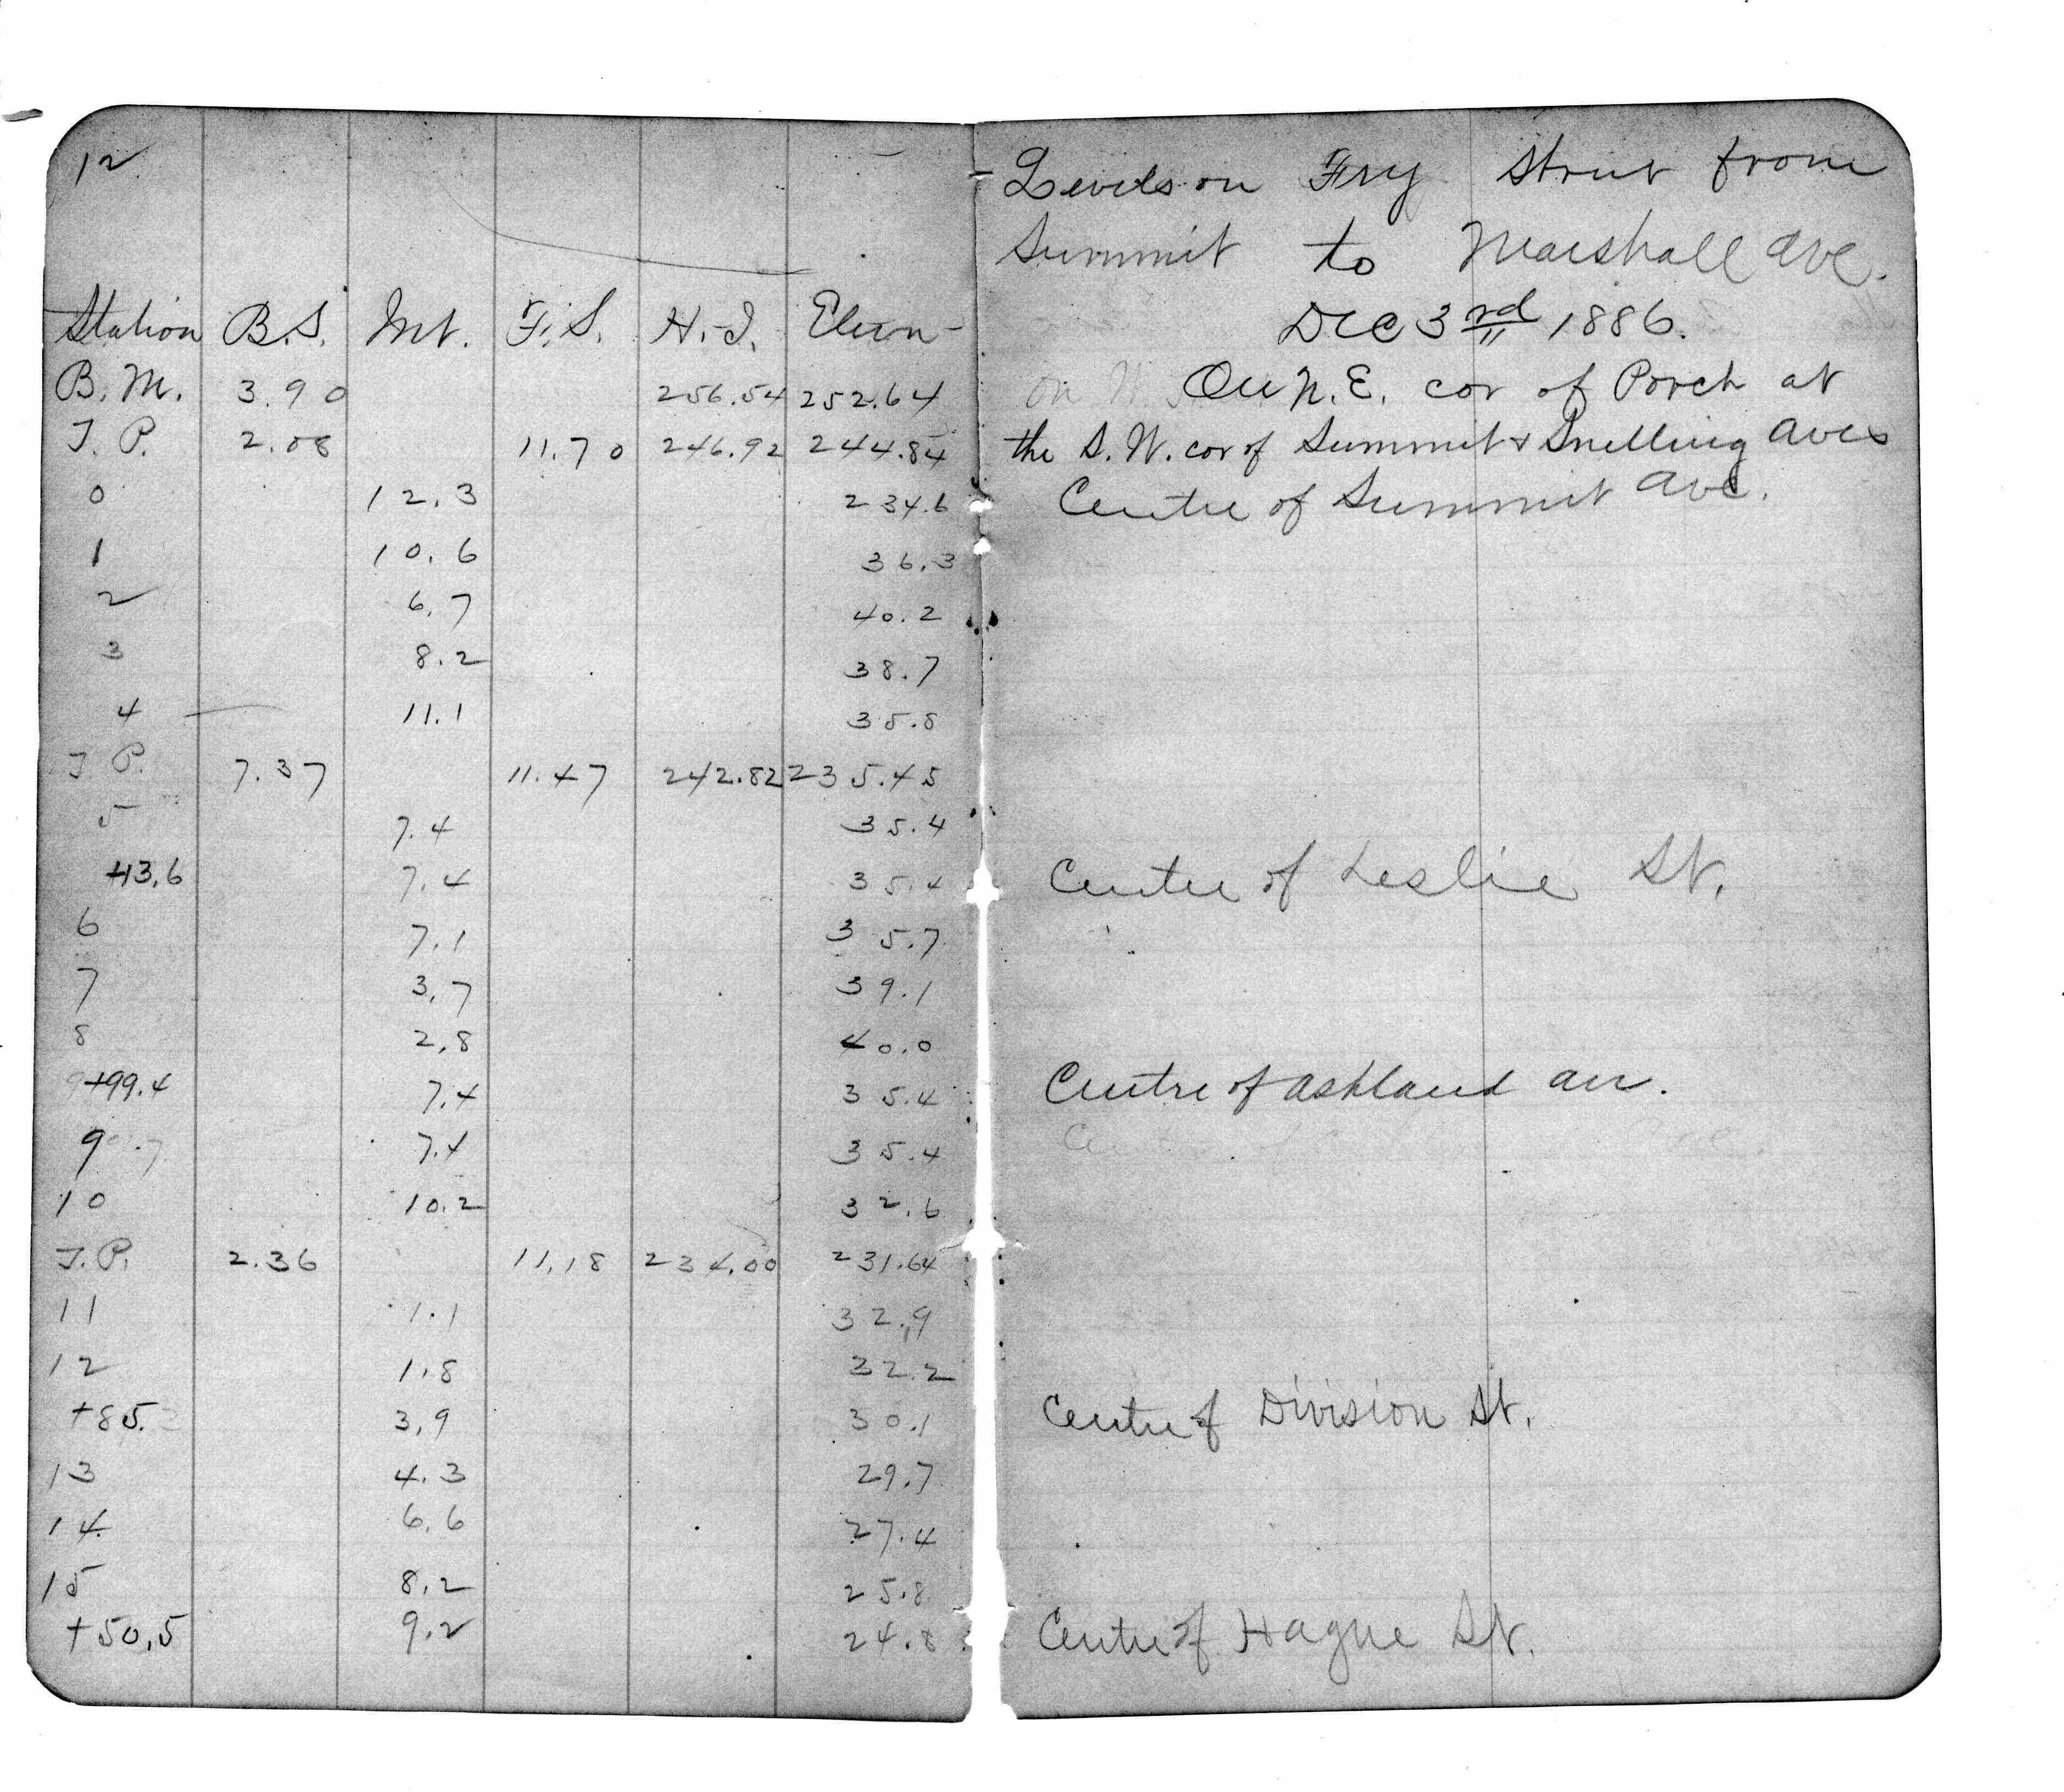 12
Levels on Fry Street from
Summit to Marshall Ave.
Dec 3rd 1886.
Station B.S. Int. F.S. H.I. Elevn
B.M. 3.90 256.54 252.64 On N.E. cor of Porch at
T.P. 2.08 11.70 246.92 244.84 the S.W. cor of Summit & Snelling Aves
0 12.3 234.6 Centre of Summit Ave.
1 10.6 36.3
2 6.7 40.2
3 8.2 38.7
4 11.1 35.8
T.P. 7.37 11.47 242.82 235.45
5 7.4 35.4
+13.6 7.4 35.4 Centre of Leslie St.
6 7.1 35.7
7 3.7 39.1
8 2.8 40.0
+99.4 7.4 35.4 Centre of Ashland av.
9 7.4 35.4
10 10.2 32.6
T.P. 2.36 11.18 234.00 231.64
11 1.1 32.9
12 1.8 32.2
+85. 3.9 30.1 Centre of Division St.
13 4.3 29.7
14 6.6 27.4
15 8.2 25.8
+50.5 9.2 24.8 Centre of Hague St.